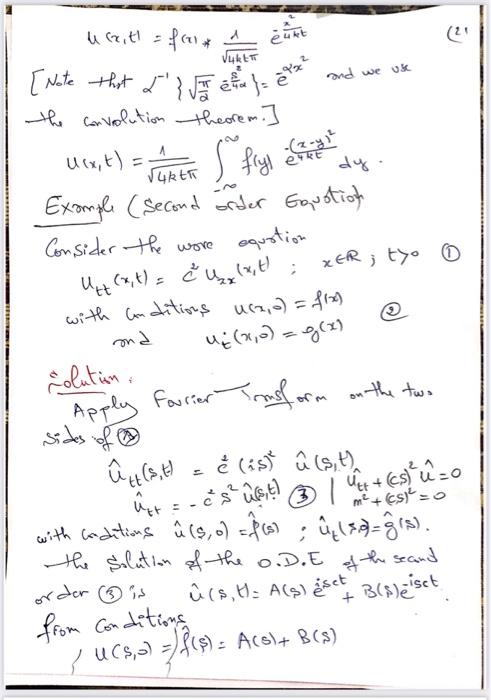 u(x,t) = f(x) * 1/√4ktπ e^-x²/4kt (21
[Note that L⁻¹{√π/α e^-s²/4α} = e^-αx² and we use
the convolution theorem.]
u(x,t) = 1/√4ktπ ∫_-∞^∞ f(y) e^-(x-y)²/4kt dy.
Example (second order Equation
Consider the wave equation
u_tt(x,t) = c² u_xx(x,t) ; x∈R ; t>0 ①
with conditions u(x,0) = f(x)
and u_t(x,0) = g(x) ②
Solution:
Apply Fourier Transform on the two
sides of
û_tt(s,t) = c² (is)² û(s,t)
û_tt = -c² s² û(s,t) ③ | û_tt + (cs)² û = 0
m² + (cs)² = 0
with conditions û(s,0) = f̂(s) ; û_t(s,0) = ĝ(s).
the solution of the O.D.E of the second
order ③ is û(s,t) = A(s) e^isct + B(s) e^-isct
from conditions
u(s,0) = f̂(s) = A(s) + B(s)